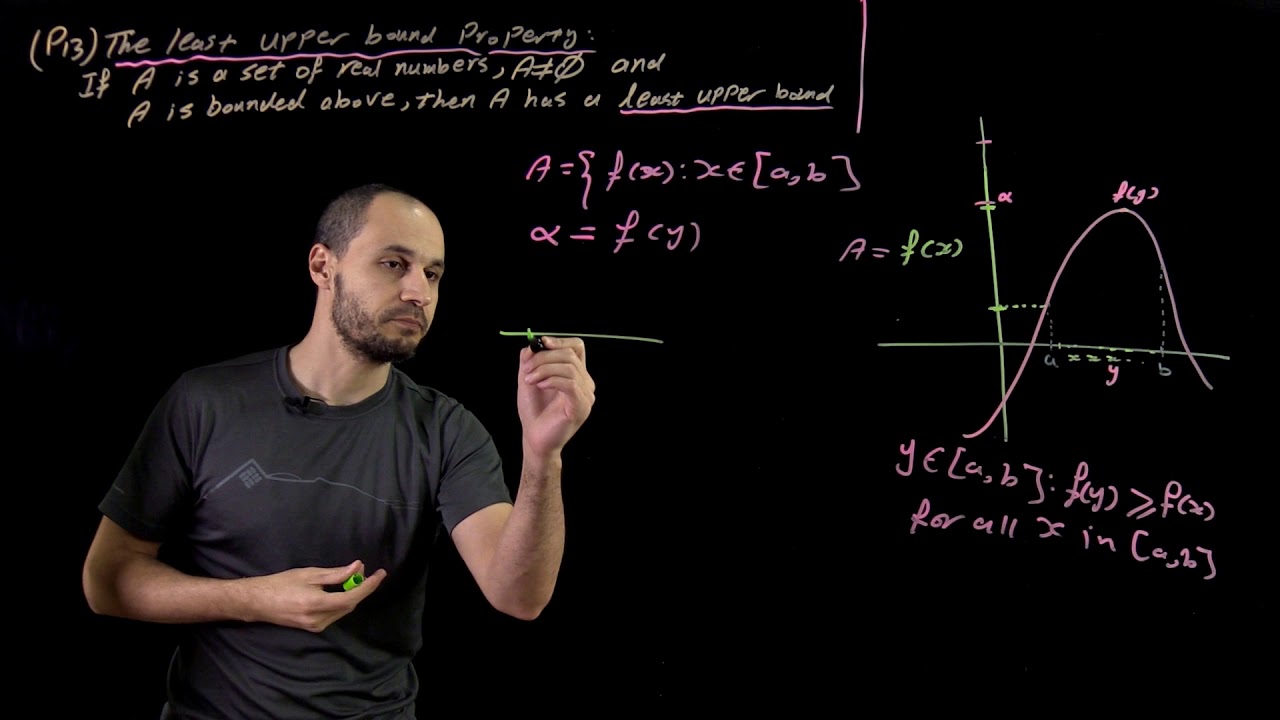 (P13) The least upper bound Property:
If A is a set of real numbers, A≠∅ and
A is bounded above, then A has a least upper bound
A={ f(x): x∈[a,b]
α = f(y)
α
f(y)
A = f(x)
a x x x . . . b
y
y∈[a,b]: f(y) ⩾ f(x)
for all x in [a,b]